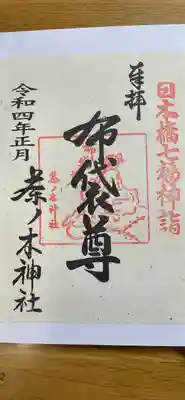 日本橋七福神詣
奉拝
布袋尊
茶ノ木神社
令和四年正月
茶ノ木神社